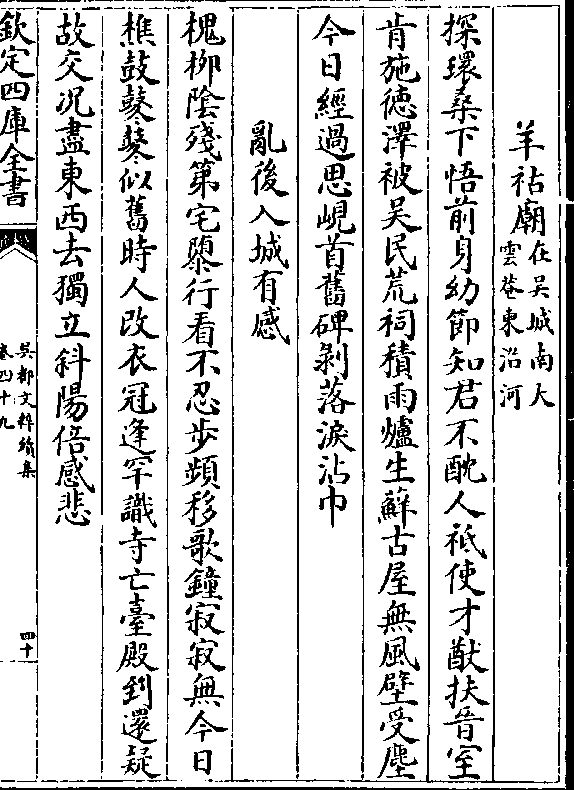 羊祜廟在吳城南大雲菴東沿河
探環桑下悟前身幼節知君不酖人祗使才猷扶晉室
肯施德澤被吳民荒祠積雨爐生蘚古屋無風壁受塵
今日經過思峴首舊碑剥落淚沾巾
亂後入城有感
槐栁隂殘第宅隳行看不忍步頻移歌鐘寂寂無今日
樵鼓鼕鼕似舊時人改衣冠逢罕識寺亡臺殿到還疑
故交况盡東西去獨立斜陽倍感悲
欽定四庫全書
吳都文粹續集
卷四十九
四十